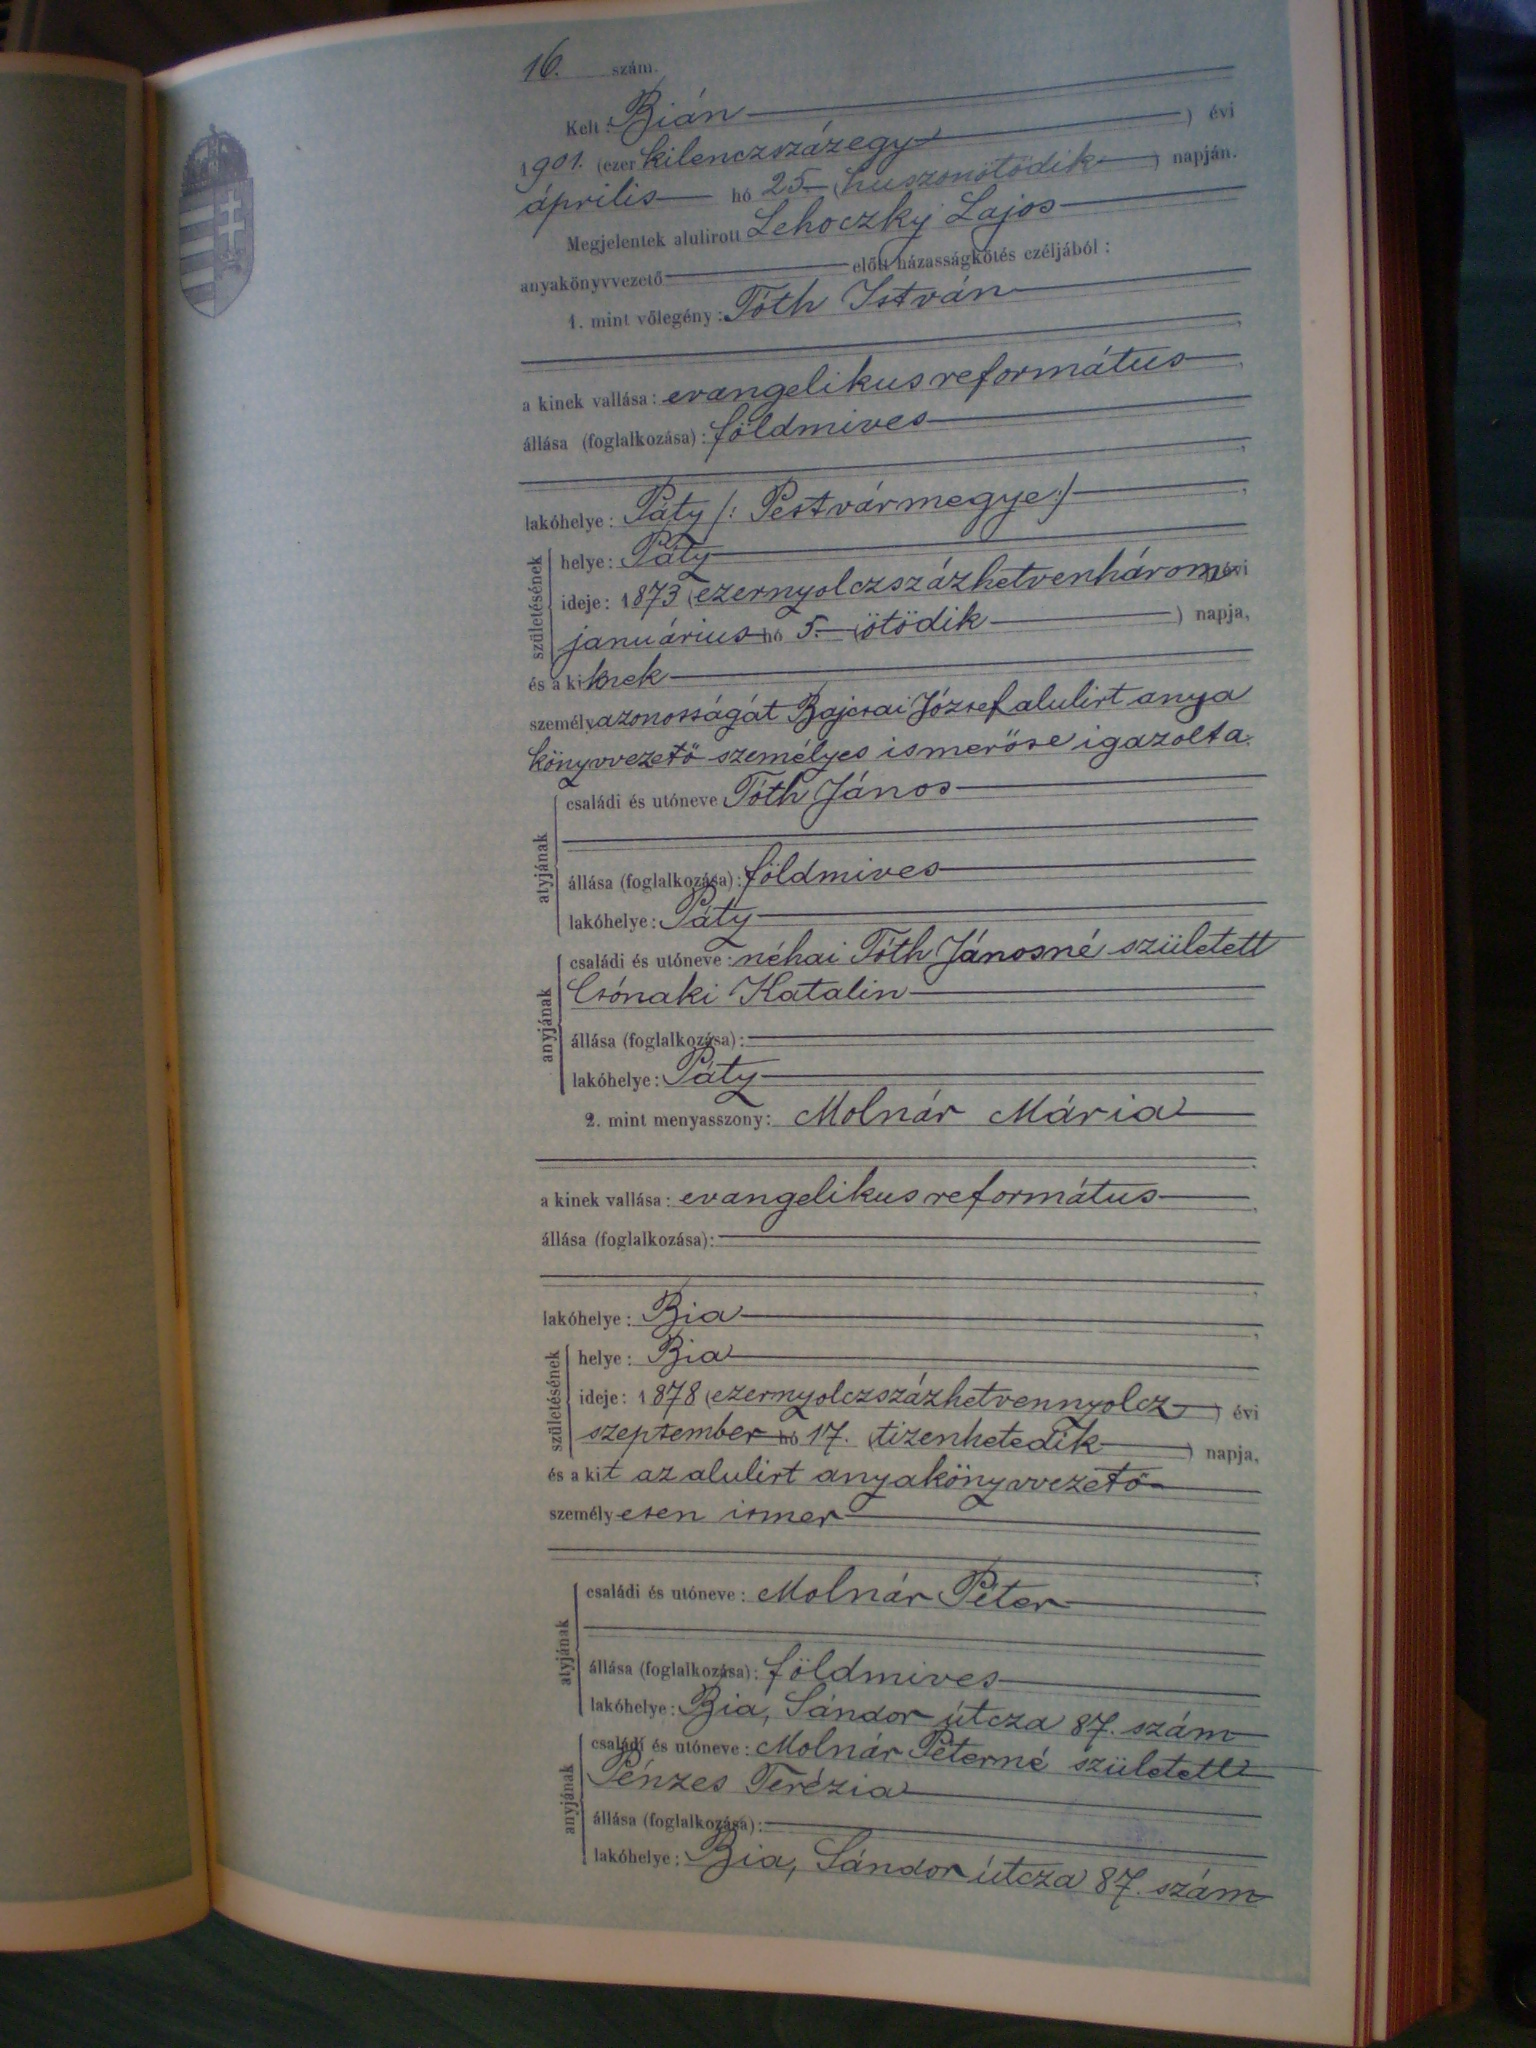 16. szám.
Kelt: Bián
1901. (ezer kilenczszázegy) évi
április hó 25 (huszonötödik) napján.
Megjelentek alulirott Lehoczky Lajos
anyakönyvvezető előtt házasságkötés czéljából:
1. mint vőlegény: Tóth István
a kinek vallása: evangelikus református
állása (foglalkozása): földmives
lakóhelye: Páty /: Pestvármegye :/
születésének
helye: Páty
ideje: 1873 (ezernyolczszázhetvenhárom) évi
januárius hó 5. (ötödik) napja,
és a kiknek
személyazonosságát Bajcsai József alulirt anya
könyvvezető személyes ismerőse igazolta.
atyjának
családi és utóneve Tóth János
állása (foglalkozása): földmives
lakóhelye: Páty
anyjának
családi és utóneve: néhai Tóth Jánosné született
Csónaki Katalin
állása (foglalkozása):
lakóhelye: Páty
2. mint menyasszony: Molnár Mária
a kinek vallása: evangelikus református
állása (foglalkozása):
lakóhelye: Bia
születésének
helye: Bia
ideje: 1878 (ezernyolczszázhetvennyolcz) évi
szeptember hó 17. (tizenhetedik) napja,
és a kit az alulirt anyakönyvvezető
személyesen ismer
atyjának
családi és utóneve: Molnár Péter
állása (foglalkozása): földmives
lakóhelye: Bia, Sándor útcza 87. szám
anyjának
családi és utóneve: Molnár Péterné született
Pénzes Terézia
állása (foglalkozása):
lakóhelye: Bia, Sándor útcza 87. szám